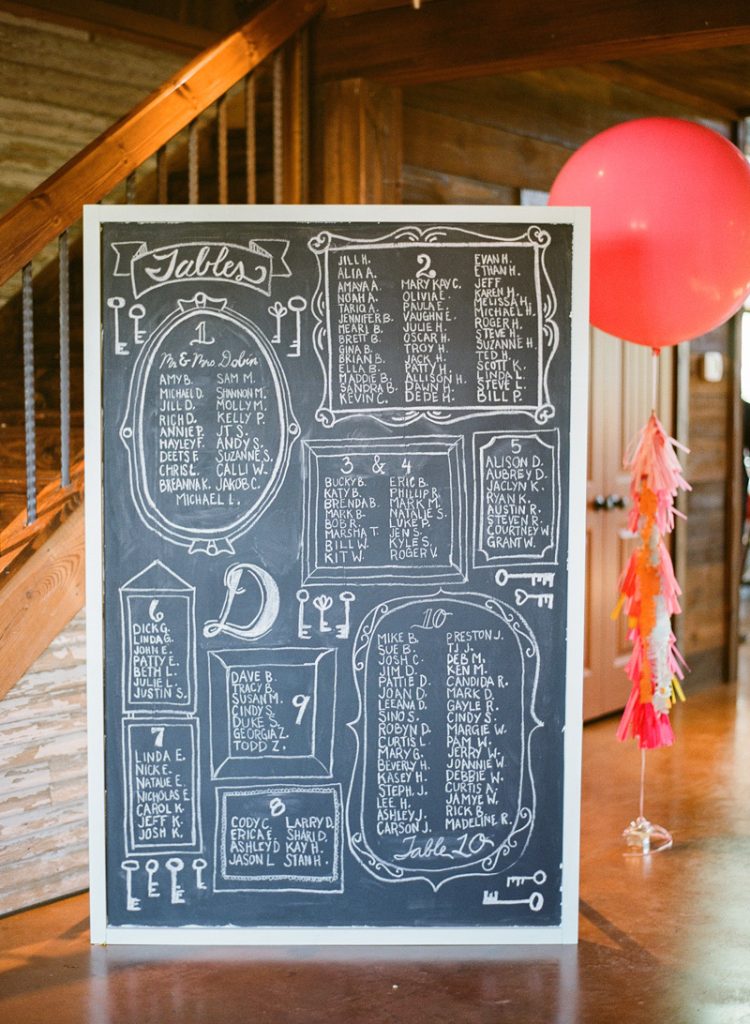 Tables
1
Mr & Mrs Dobin
AMY B.
MICHAEL D.
JILL D.
RICH D.
ANNIE P.
HAYLEY F.
DEETS F.
CHRIS L.
BREANNA K.
SAM M.
SHANNON M.
MOLLY M.
KELLY P.
T. S.
ANDY S.
SUZANNE S.
CALLI W.
JAKOB C.
MICHAEL L.
2
JILL H.
ALIA A.
AMAYA A.
NOAH A.
TARIQ A.
JENNIFER B.
MEARL B.
BRETT B.
GINA B.
BRIAN B.
ELLA B.
MADDIE B.
SANDRA B.
KEVIN C.
MARY KAY C.
OLIVIA E.
PAULA E.
VAUGHN E.
JULIE H.
OSCAR H.
TROY H.
JACK H.
PATTY H.
ALLISON H.
DAWN H.
DEDE H.
EVAN H.
ETHAN H.
JEFF
KAREN H.
MELISSA H.
MICHAEL H.
ROGER H.
STEVE H.
SUZANNE H.
TED H.
SCOTT K.
LINDA L.
STEVE L.
BILL P.
3 & 4
BUCKY B.
KATY B.
BRENDA B.
MARK B.
BOB R.
MARSHA T.
BILL W.
KIT W.
ERIC B.
PHILLIP R.
MARK M.
NATALIE S.
LUKE P.
JEN S.
KYLE S.
ROGER V.
5
ALISON D.
AUBREY D.
JACLYN K.
RYAN K.
AUSTIN R.
STEVEN R.
COURTNEY W.
GRANT W.
6
DICK G.
LINDA G.
JOHN E.
PATTY E.
BETH L.
JULIE L.
JUSTIN S.
D
7
LINDA E.
NICK E.
NATALIE E.
NICHOLAS E.
CAROL K.
JEFF K.
JOSH K.
9
DAVE B.
TRACY B.
SUSAN M.
CINDY S.
DUKE S.
GEORGIA Z.
TODD Z.
8
CODY C.
ERICA E.
ASHLEY D
JASON L
LARRY D.
SHARI D.
KAY H.
STAN H.
10
MIKE B.
SUE B.
JOSH C.
JIM D.
PATTIE D.
JOAN D.
LEEANA D.
SINO S.
ROBYN D.
CURTIS L.
MARY G.
BEVERLY H.
KASEY H.
STEPH. J.
LEE H.
ASHLEY J.
CARSON J.
PRESTON J.
TJ J.
DEB M.
KEN M.
CANDIDA R.
MARK D.
GAYLE R.
CINDY S.
MARGIE W.
PAM W.
JERRY W.
JOANNIE W.
DEBBIE W.
CURTIS A.
JAMYE W.
RICK B.
MADELINE R.
Table 10